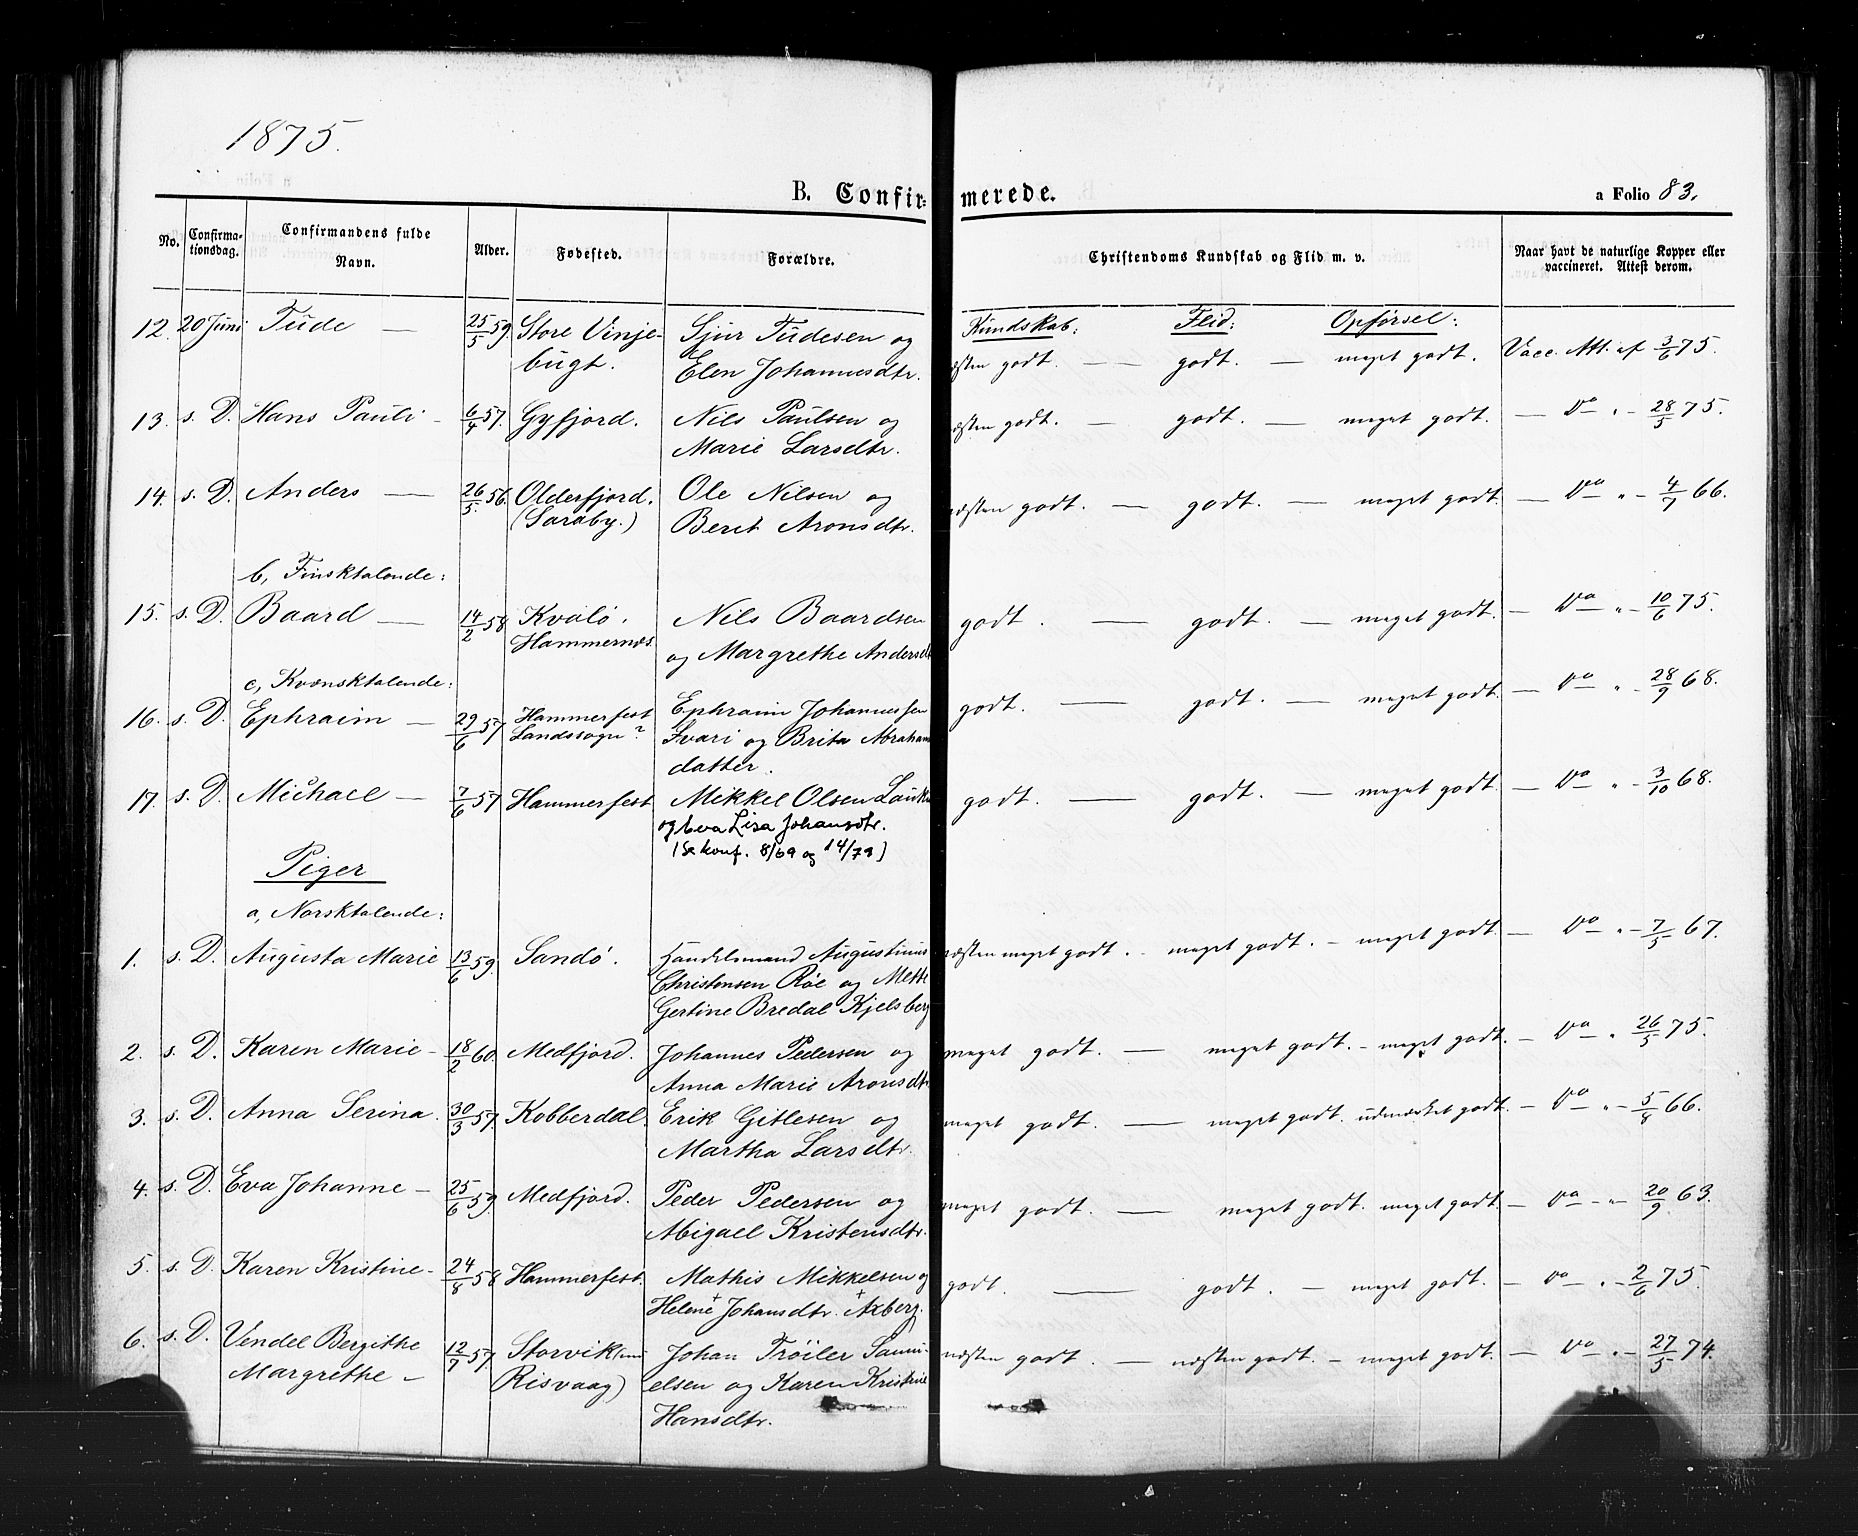 1875.
B. Confir=
merede.
a Folio 83.
No.
Confirma-
tionsdag.
Confirmandens fulde
Navn.
Alder.
Fødested.
Forældre.
Christendoms Kundskab og Flid m. v.
Naar havt de naturlige Kopper eller
vaccineret. Attest derom.
Kundskab: Flid: Opførsel:
12. 20 Juni Tude — 25/5 59. Store Vinje- Sjur Tudesen og
bugt. Elen Johannesdtr. næsten godt. — — godt. — meget godt. Vacc. Att. af 3/6 75.
13. s. D. Hans Pauli — 6/4 57. Gyfjord. Nils Paulsen og næsten godt. — godt. — meget godt. — Do " - 28/5 75.
Marie Larsdtr.
14. s. D. Anders — 26/5 56. Olderfjord. Ole Nilsen og næsten godt. — godt. — meget godt. — Do " - 4/7 66.
(Saraby.) Berit Aronsdtr.
b, Finsktalende:
15. s. D. Baard — 14/2 58 Kvalö. Nils Baardsen godt. — godt. — meget godt. — Do " - 10/6 75.
Hammernæs. og Margrethe Andersdt
c, Kvænsktalende:
16. s. D. Ephraim — 29/6 57 Hammerfest Ephraim Johannessen godt. — godt. — meget godt. — Do " - 28/9 68.
Landssogn? og Brita Abraham
datter.
17. s. D. Michael — 7/6 57 Hammerfest Mikkel Olsen godt. — godt. — meget godt. — Do " - 3/10 68.
og Eva Lisa Johansdtr.
(Se konf. 8/69 og 14/79)
Piger
a, Norsktalende:
1. s. D. Augusta Marie 13/6 59. Sandö. Handelsmand Augustinus næsten meget godt. - meget godt. - meget godt. — Do " - 7/5 67.
Christensen Röe og Mette
Gertine Bredal Kjelsberg
2. s. D. Karen Marie - 18/2 60. Medfjord. Johannes Pedersen og meget godt. — meget godt. - meget godt. — Do " 26/5 75.
Anna Marie Aronsdtr
3. s. D. Anna Serina. 30/3 57 Kobberdal. Erik Gitlesen og meget godt. — meget godt. udmærket godt. — Do " - 5/8 66.
Martha Larsdtr.
4. s. D. Eva Johanne — 25/6 59. Medfjord. Peder Pedersen og meget godt. — meget godt. meget godt. — Do - " - 20/9 63.
Abigael Kristensdtr.
5. s. D. Karen Kristine - 24/8 58 Hammerfest. Mathis Mikkelsen og godt. — godt. — meget godt. — Do " - 2/6 75.
Helene + Johansdtr. + Axberg.
6. s. D. Vendel Bergithe 12/7 57 Storvik Johan Tröiler Samu- næsten godt. — næsten godt. - meget godt. — Do " - 27/5 74.
Margrethe — Risvaag) elsen og Karen Kristine
Hansdtr.